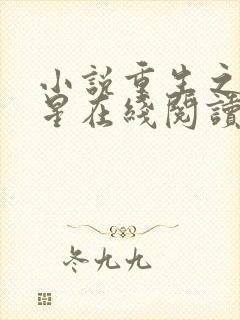 小説重生之
星在綫閱讀
冬九九